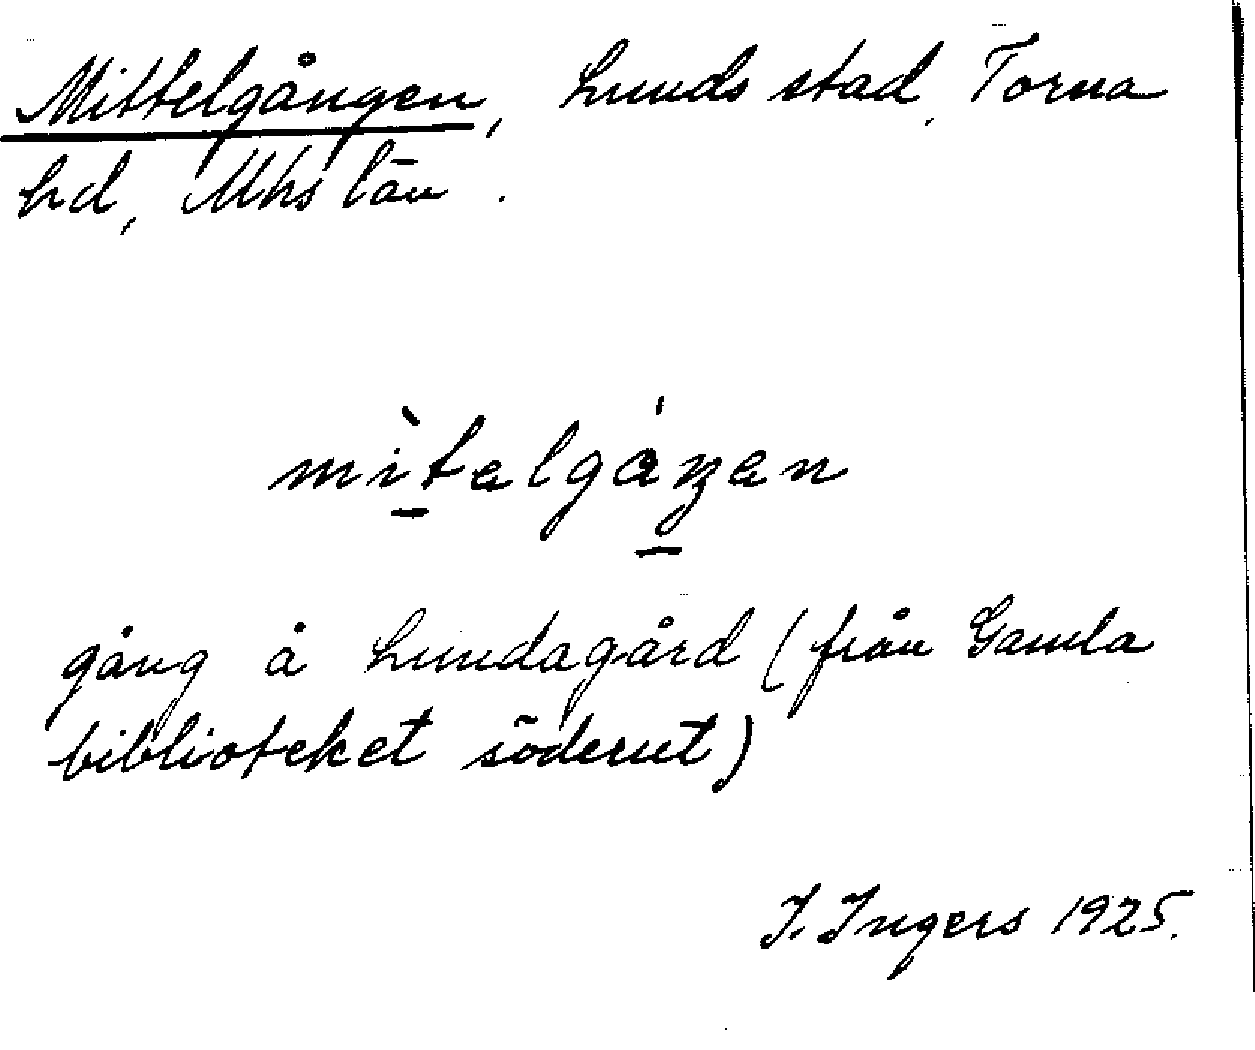 Mittelgången, Lunds stad, Torna
hd, Mhs län.
mìtelgáŋen
gång å Lundagård (från Gamla
biblioteket söderut)
I. Ingers 1925.